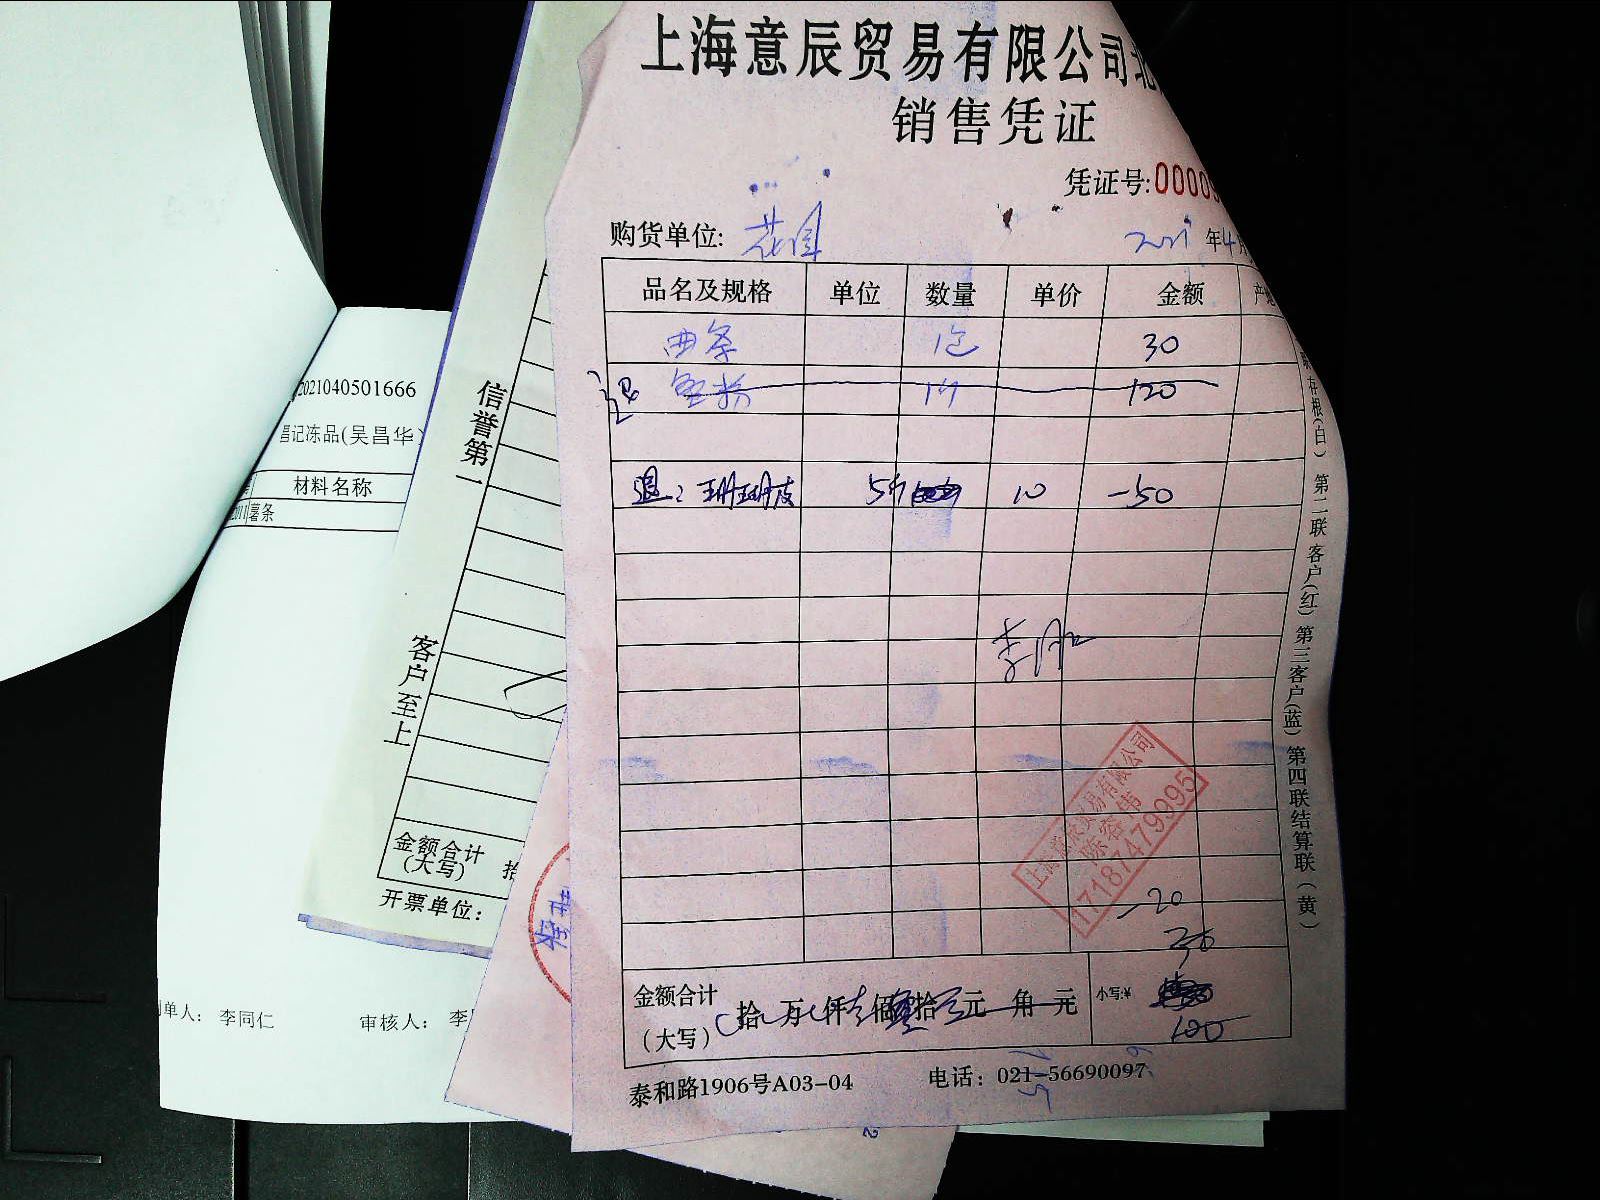 上海意辰贸易有限公司北
销售凭证
凭证号:0000
购货单位: 花园
2021 年4月
品名及规格 单位 数量 单价 金额 产地
曲条 1包 30
退 120
退: 珊珊皮 5斤 10 -50
李
上海意辰贸易有限公司
陈容伟
17187479995
-20
30
金额合计
(大写)
拾 万 仟 佰 拾 元 角 元
小写:¥
100
泰和路1906号A03-04 电话: 021-56690097
存根(白) 第二联 客户(红) 第三客户(蓝) 第四联结算联(黄)
信誉第一
客户至上
金额合计
(大写) 拾
开票单位:
2021040501666
昌记冻品(吴昌华)
材料名称
薯条
单人: 李同仁 审核人: 李